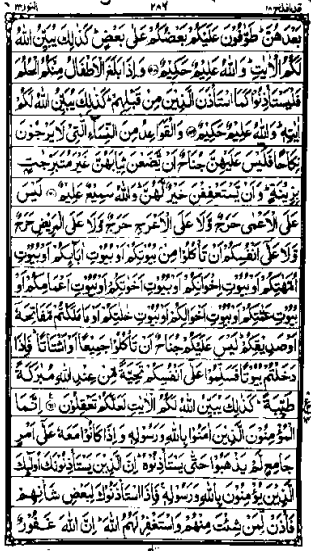 قد افلح ١٨ ٢٨٦ النور ٢٤
بَعْدَهُنَّ طَوّٰفُوْنَ عَلَيْكُمْ بَعْضُكُمْ عَلٰى بَعْضٍ كَذٰلِكَ يُبَيِّنُ اللّٰهُ
لَكُمُ الْاٰيٰتِ وَاللّٰهُ عَلِيْمٌ حَكِيْمٌ وَاِذَا بَلَغَ الْاَطْفَالُ مِنْكُمُ الْحُلُمَ
فَلْيَسْتَاْذِنُوْا كَمَا اسْتَاْذَنَ الَّذِيْنَ مِنْ قَبْلِهِمْ كَذٰلِكَ يُبَيِّنُ اللّٰهُ لَكُمْ
اٰيٰتِهٖ وَاللّٰهُ عَلِيْمٌ حَكِيْمٌ وَالْقَوَاعِدُ مِنَ النِّسَآءِ الّٰتِيْ لَا يَرْجُوْنَ
نِكَاحًا فَلَيْسَ عَلَيْهِنَّ جُنَاحٌ اَنْ يَّضَعْنَ ثِيَابَهُنَّ غَيْرَ مُتَبَرِّجٰتٍ
بِزِيْنَةٍ وَاَنْ يَّسْتَعْفِفْنَ خَيْرٌ لَّهُنَّ وَاللّٰهُ سَمِيْعٌ عَلِيْمٌ لَيْسَ
عَلَى الْاَعْمٰى حَرَجٌ وَّلَا عَلَى الْاَعْرَجِ حَرَجٌ وَّلَا عَلَى الْمَرِيْضِ حَرَجٌ
وَّلَا عَلٰى اَنْفُسِكُمْ اَنْ تَاْكُلُوْا مِنْ بُيُوْتِكُمْ اَوْ بُيُوْتِ اٰبَآئِكُمْ اَوْ بُيُوْتِ
اُمَّهٰتِكُمْ اَوْ بُيُوْتِ اِخْوَانِكُمْ اَوْ بُيُوْتِ اَخَوٰتِكُمْ اَوْ بُيُوْتِ اَعْمَامِكُمْ اَوْ
بُيُوْتِ عَمّٰتِكُمْ اَوْ بُيُوْتِ اَخْوَالِكُمْ اَوْ بُيُوْتِ خٰلٰتِكُمْ اَوْ مَا مَلَكْتُمْ مَّفَاتِحَهٗ
اَوْ صَدِيْقِكُمْ لَيْسَ عَلَيْكُمْ جُنَاحٌ اَنْ تَاْكُلُوْا جَمِيْعًا اَوْ اَشْتَاتًا فَاِذَا
دَخَلْتُمْ بُيُوْتًا فَسَلِّمُوْا عَلٰى اَنْفُسِكُمْ تَحِيَّةً مِّنْ عِنْدِ اللّٰهِ مُبٰرَكَةً
طَيِّبَةً كَذٰلِكَ يُبَيِّنُ اللّٰهُ لَكُمُ الْاٰيٰتِ لَعَلَّكُمْ تَعْقِلُوْنَ اِنَّمَا
الْمُؤْمِنُوْنَ الَّذِيْنَ اٰمَنُوْا بِاللّٰهِ وَرَسُوْلِهٖ وَاِذَا كَانُوْا مَعَهٗ عَلٰى اَمْرٍ
جَامِعٍ لَّمْ يَذْهَبُوْا حَتّٰى يَسْتَاْذِنُوْهُ اِنَّ الَّذِيْنَ يَسْتَاْذِنُوْنَكَ اُولٰٓئِكَ
الَّذِيْنَ يُؤْمِنُوْنَ بِاللّٰهِ وَرَسُوْلِهٖ فَاِذَا اسْتَاْذَنُوْكَ لِبَعْضِ شَاْنِهِمْ
فَاْذَنْ لِّمَنْ شِئْتَ مِنْهُمْ وَاسْتَغْفِرْ لَهُمُ اللّٰهَ اِنَّ اللّٰهَ غَفُوْرٌ